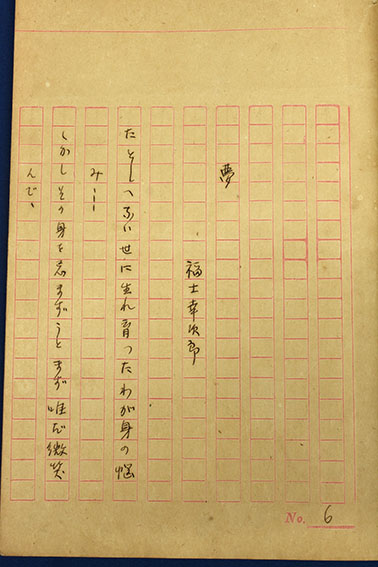 夢
福士幸次郎
たとしへない世に生れ育つたわが身の惱
み――
しかしその身を忌まずうとまず唯だ微笑
んで、
No. 6